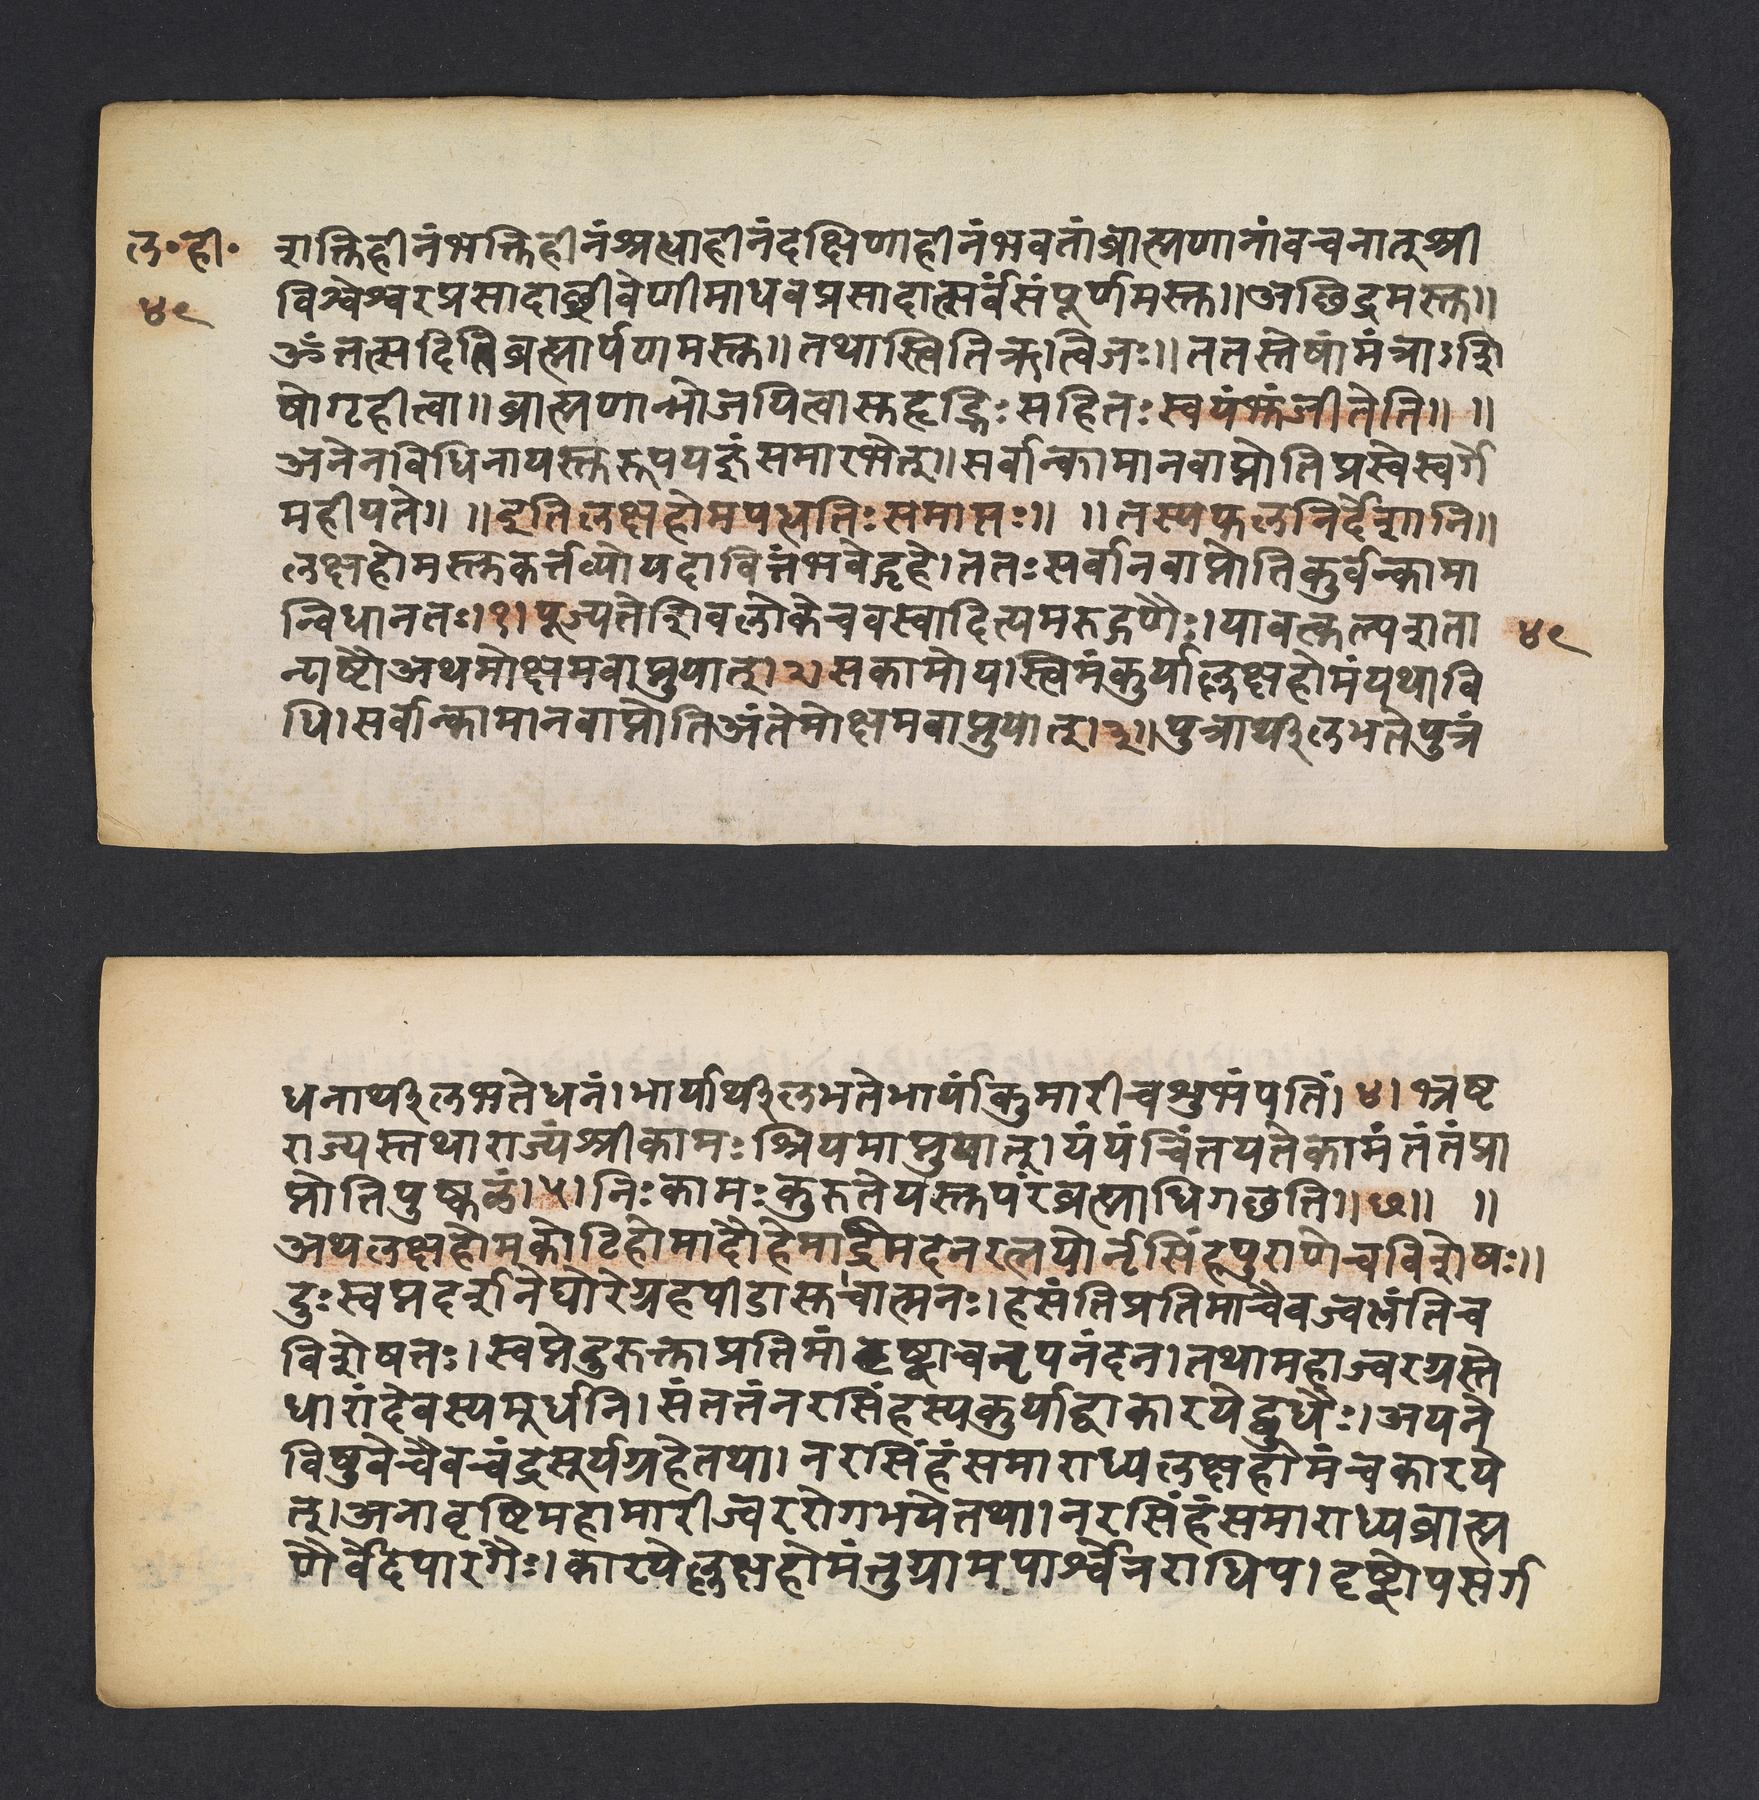 ल॰ही॰
४९
शक्तिहीनंभक्तिहीनंश्रद्धाहीनंदक्षिणाहीनंभवतांब्राह्मणानांवचनात्श्री
विश्वेश्वरप्रसादाच्छ्रीवेणीमाधवप्रसादात्सर्वंसंपूर्णमस्तु॥अछिद्रमस्तु॥
ॐतत्सदितिब्रह्मार्पणमस्तु॥तथास्त्वितिऋत्विजः॥ततस्तेषांमंत्राऽशि
षोगृहीत्वा॥ब्राह्मणान्भोजयित्वासुहृद्भिःसहितःस्वयंभुंजीतेति॥ ॥
अनेनविधिनायस्तुरुपयज्ञंसमारभेत्॥सर्वान्कामानवाप्नोतिप्रस्वेस्वर्गे
महीपते॥ ॥इतिलक्षहोमपद्धतिःसमाप्तः॥ ॥तस्यफलनिर्देशानि॥
लक्षहोमस्तुकर्त्तव्योयदावित्तंभवेद्गृहे।ततःसर्वानवाप्नोतिकुर्वन्कामा
न्विधानतः।१।पूज्यतेशिवलोकेचवस्वादित्यमरुद्गणैः।यावत्कल्पशता
न्यष्टौअथमोक्षमवाप्नुयात्।२।सकामोयस्त्विमंकुर्याल्लक्षहोमंयथावि
धि।सर्वान्कामानवाप्नोतिअंतेमोक्षमवाप्नुयात्।३॥पुत्रार्थीलभतेपुत्रं
४९
धनार्थीलभतेधनं।भार्यार्थीलभतेभार्यांकुमारीचशुभंपतिं।४।भ्रष्ट
राज्यस्तथाराज्यंश्रीकामःश्रियमाप्नुयात्।यंयंचिंतयतेकामंतंतंप्रा
प्नोतिपुष्कळं।५।निःकामःकुरुतेयस्तुपरंब्रह्माधिगछति॥छ॥ ॥
अथलक्षहोमकोटिहोमादौहेमाद्रौमदनरत्नयोर्नृसिंहपुराणेचविशेषः॥
दुःस्वप्नदर्शनेघोरेग्रहपीडासुचात्मनः।हसंतिप्रतिमाचैवज्वलंतिच
विशेषतः।स्वप्नेदुरुक्ताप्रतिमांदृष्ट्वाचनृपनंदन।तथामहाज्वरग्रस्ते
धारांदेवस्यमूर्धनि।संततंनरसिंहस्यकुर्याद्वाकारयेद्बुधैः।अयने
विषुवेचैवचंद्रसूर्यग्रहेतथा।नरसिंहंसमाराध्यलक्षहोमंचकारये
त्।अनावृष्टिमहामारीज्वररोगभयेतथा।नरसिंहंसमाराध्यब्राह्म
णैर्वेदपारगैः।कारयेल्लक्षहोमंतुग्रामपार्श्वेनराधिप।दृष्ट्वोपसर्ग